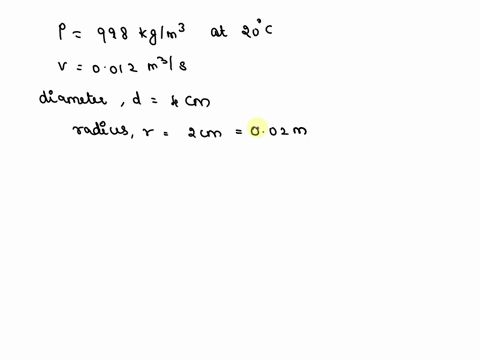 P = 998 kg/m³ at 20°C
v = 0.012 m³/s
diameter, d = 4 cm
radius, r = 2 cm = 0.02 m